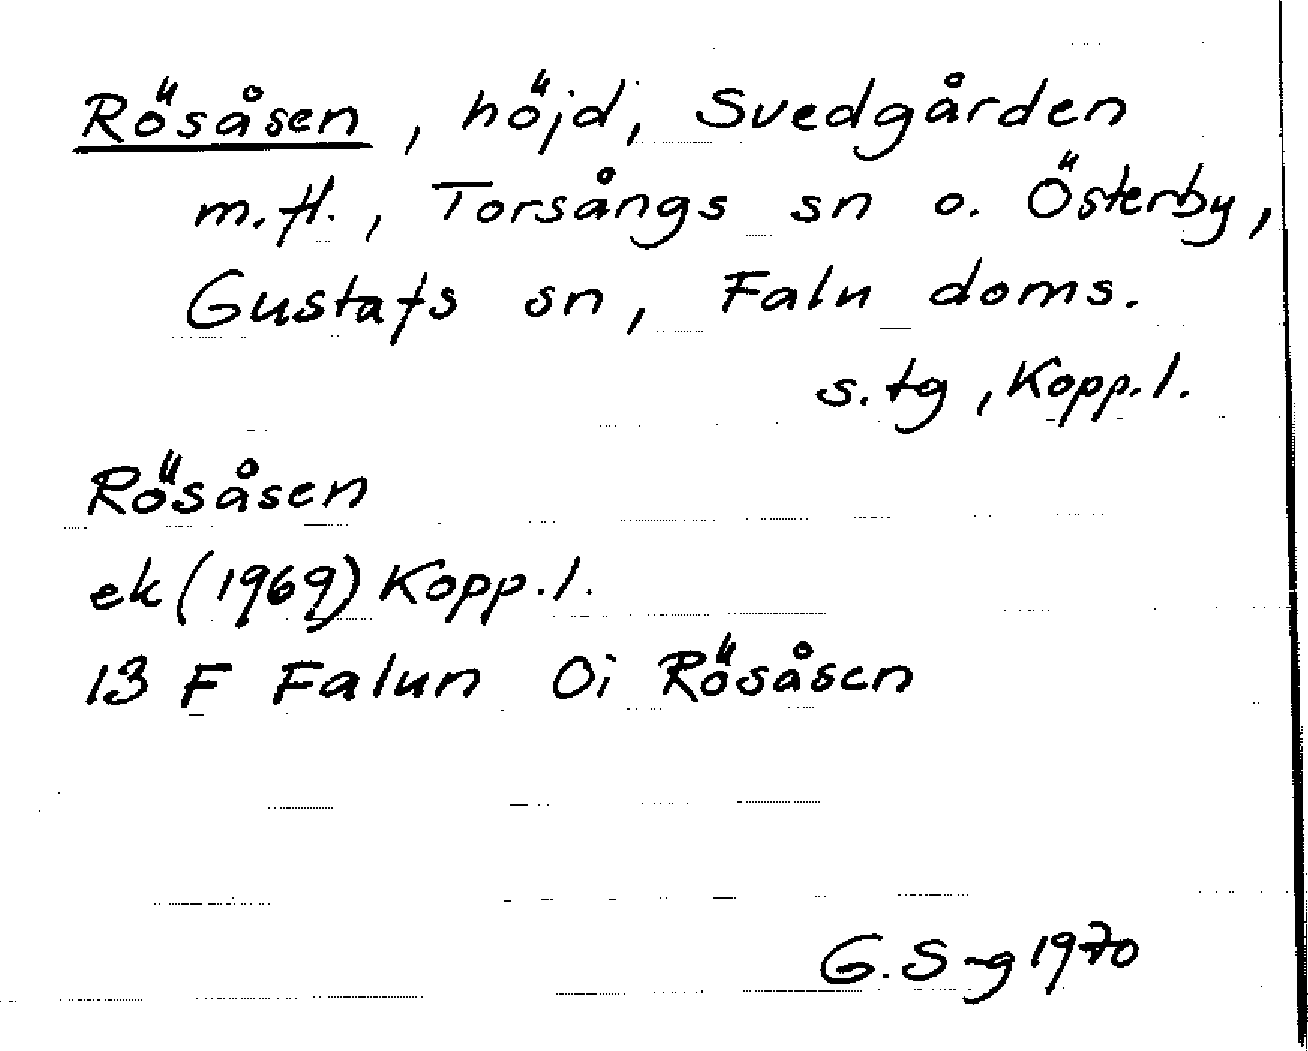 Rösåsen, höjd, Svedgården
m.fl., Torsångs sn o. Österby,
Gustafs sn, Falu doms.
s. tg, Kopp. l.
Rösåsen
ek (1969) Kopp. l.
13 F Falun 0i Rösåsen
G. S-g 1970